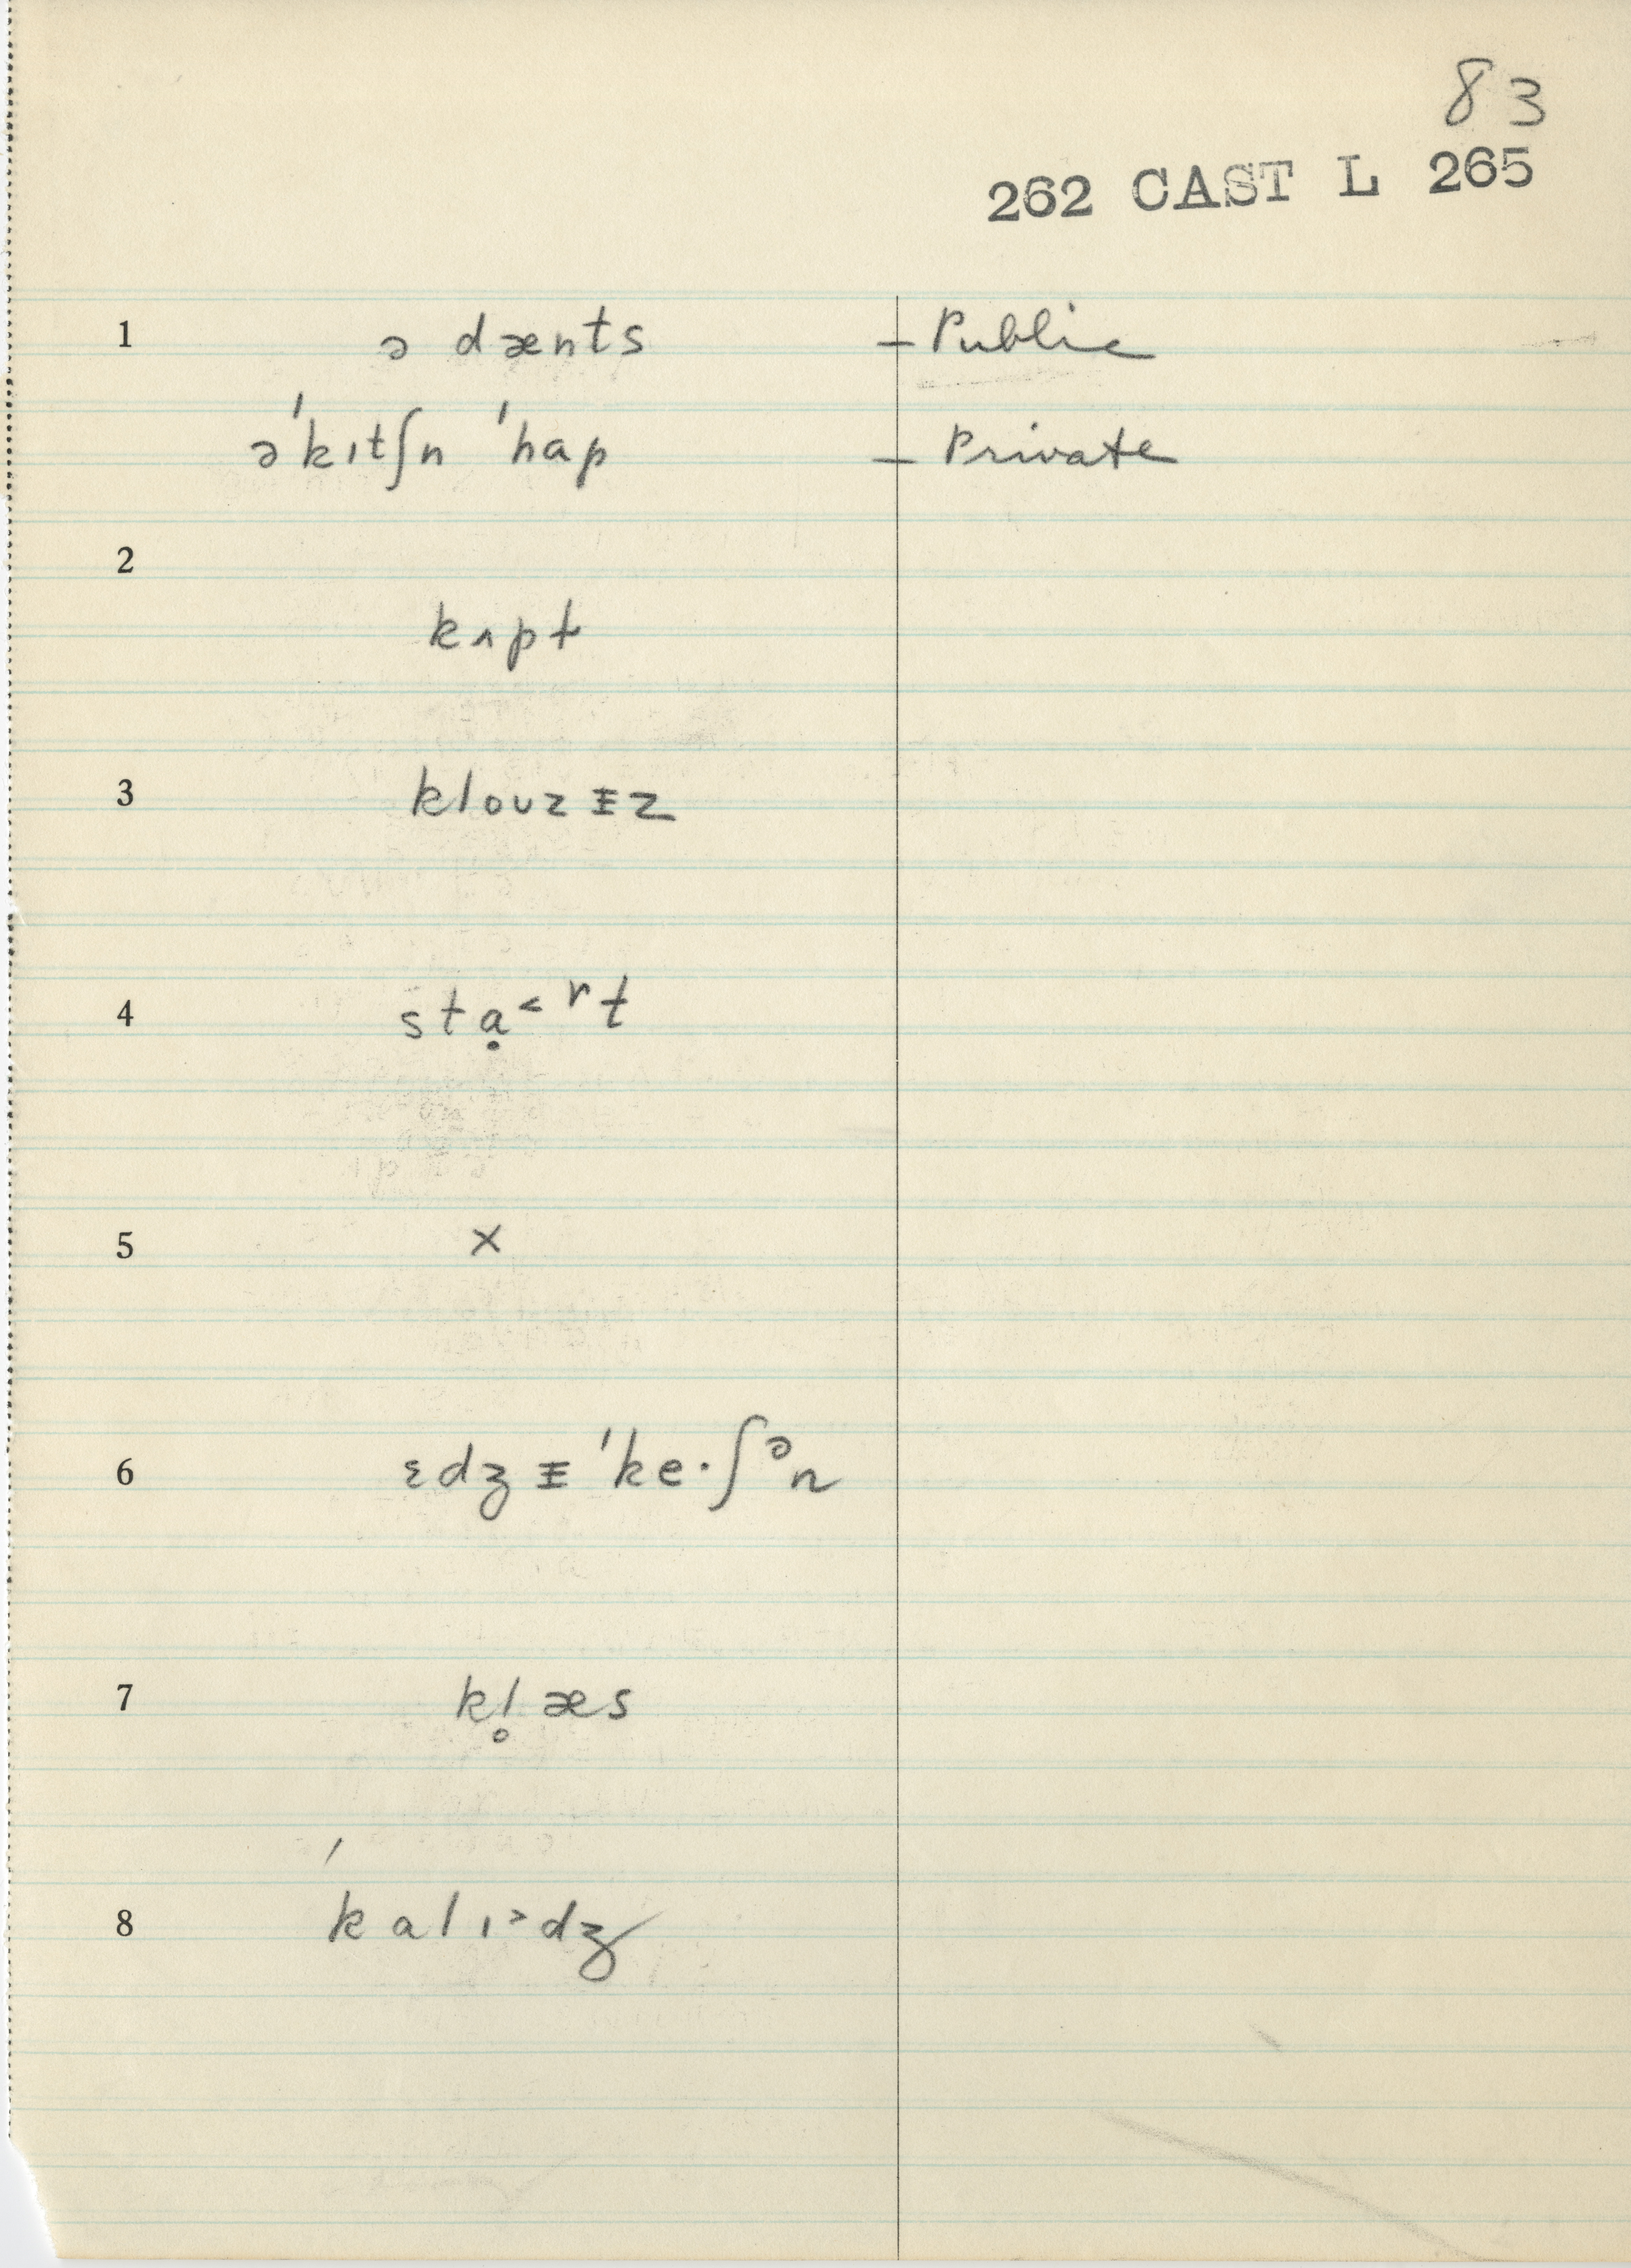 83
262 CAST L 265
1 ə dænts – Public
ə'kɪtʃn 'hap – Private
2
kʌpt
3 klouzɪ̵z
4 stạ˂rt
5 ×
6 ɛdʒɪ̵'ke·ʃᵊn
7 kl̥æs
8 'kalɪ˃dʒ